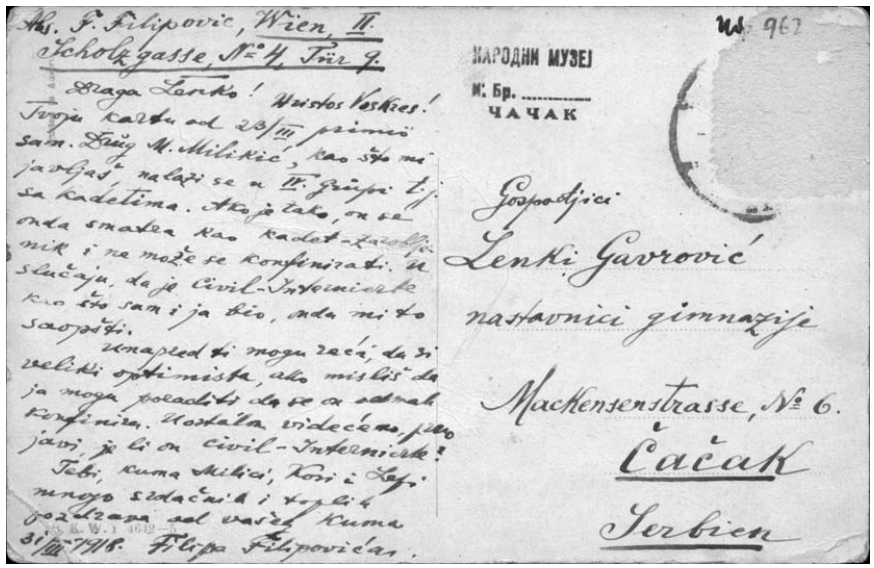 Abs. F. Filipović, Wien, II.
Scholzgasse, № 4, Tür 9.
Draga Lenko! Hristos Voskres!
Tvoju kartu od 23/III primio
sam. Drug M. Milikić, kao što mi
javljaš, nalazi se u IV. grupi t.j.
sa kadetima. Ako je tako, on se
onda smatra kao kadet-zaroblje
nik i ne može se konfinirati. U
slučaju, da je Civil-Internierte
kao što sam i ja bio, onda mi to
saopšti.
Unapred ti mogu reći, da si
veliki optimista, ako misliš da
ja mogu poraditi da se on odmah
konfinira. Uostalom videćemo, prvo
javi, je li on Civil-Internierte?
Tebi, kuma Milici, Kosi i Lepi
mnogo srdačnih i toplih
pozdrava od vašeg kuma
31/III 1918. Filipa Filipovića.
B. K. W. I 4642-5
НАРОДНИ МУЗЕЈ
И. Бр.
ЧАЧАК
962
Gospodjici
Lenki Gavrović
nastavnici gimnazije
Mackensenstrasse, № 6.
Čačak
Serbien